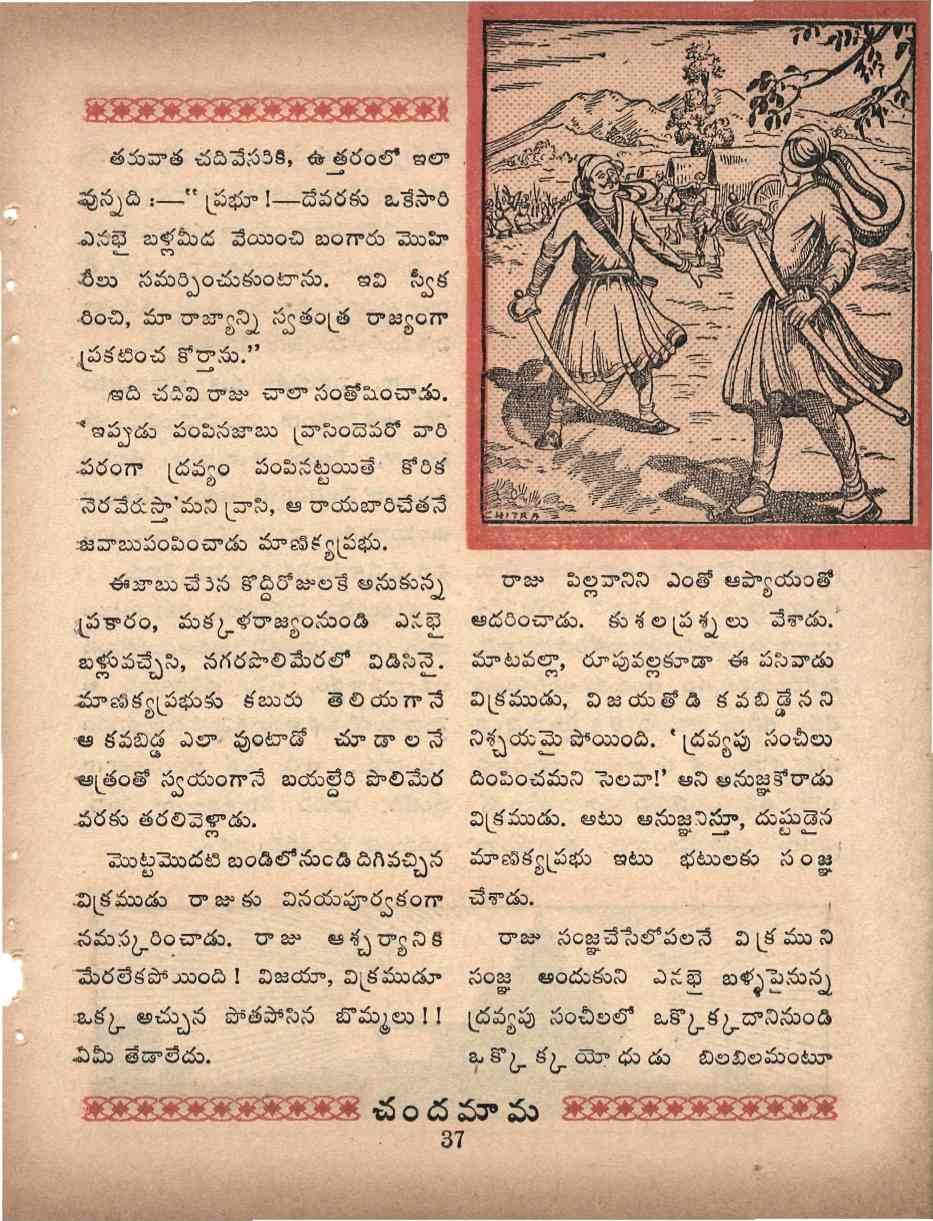 తరువాత చదివేసరికి, ఉత్తరంలో ఇలా
వున్నది :—“ ప్రభూ !—దేవరకు ఒకేసారి
ఎనభై బళ్లమీద వేయించి బంగారు మొహి
రీలు సమర్పించుకుంటాను. ఇవి స్వీక
రించి, మా రాజ్యాన్ని స్వతంత్ర రాజ్యంగా
ప్రకటించ కోర్తాను.”
ఇది చదివి రాజు చాలా సంతోషించాడు.
‘ఇప్పుడు పంపినజాబు వ్రాసిందెవరో వారి
పరంగా ద్రవ్యం పంపినట్టయితే కోరిక
నెరవేరుస్తా’మని వ్రాసి, ఆ రాయబారిచేతనే
జవాబుపంపించాడు మాణిక్యప్రభు.
ఈజాబు చేరిన కొద్దిరోజులకే అనుకున్న
ప్రకారం, మక్కళరాజ్యంనుండి ఎనభై
బళ్లువచ్చేసి, నగరపొలిమేరలో విడిసినై.
మాణిక్యప్రభుకు కబురు తెలియగానే
ఆ కవబిడ్డ ఎలా వుంటాడో చూడాలనే
ఆత్రంతో స్వయంగానే బయల్దేరి పొలిమేర
వరకు తరలివెళ్లాడు.
మొట్టమొదటి బండిలోనుండి దిగివచ్చిన
విక్రముడు రాజుకు వినయపూర్వకంగా
నమస్కరించాడు. రాజు ఆశ్చర్యానికి
మేరలేకపోయింది ! విజయా, విక్రముడూ
ఒక్క అచ్చున పోతపోసిన బొమ్మలు !!
ఏమీ తేడాలేదు.
CHITRA
రాజు పిల్లవానిని ఎంతో ఆప్యాయంతో
ఆదరించాడు. కుశలప్రశ్నలు వేశాడు.
మాటవల్లా, రూపువల్లకూడా ఈ పసివాడు
విక్రముడు, విజయతోడి కవబిడ్డేనని
నిశ్చయమై పోయింది. ‘ద్రవ్యపు సంచీలు
దింపించమని సెలవా!’ అని అనుజ్ఞకోరాడు
విక్రముడు. ఆటు అనుజ్ఞనిస్తూ, దుష్టుడైన
మాణిక్యప్రభు ఇటు భటులకు సంజ్ఞ
చేశాడు.
రాజు సంజ్ఞచేసేలోపలనే విక్రముని
సంజ్ఞ అందుకుని ఎనభై బళ్ళపైనున్న
ద్రవ్యపు సంచీలలో ఒక్కొక్కదానినుండి
ఒక్కొక్క యోధుడు బిలబిలమంటూ
చందమామ
37